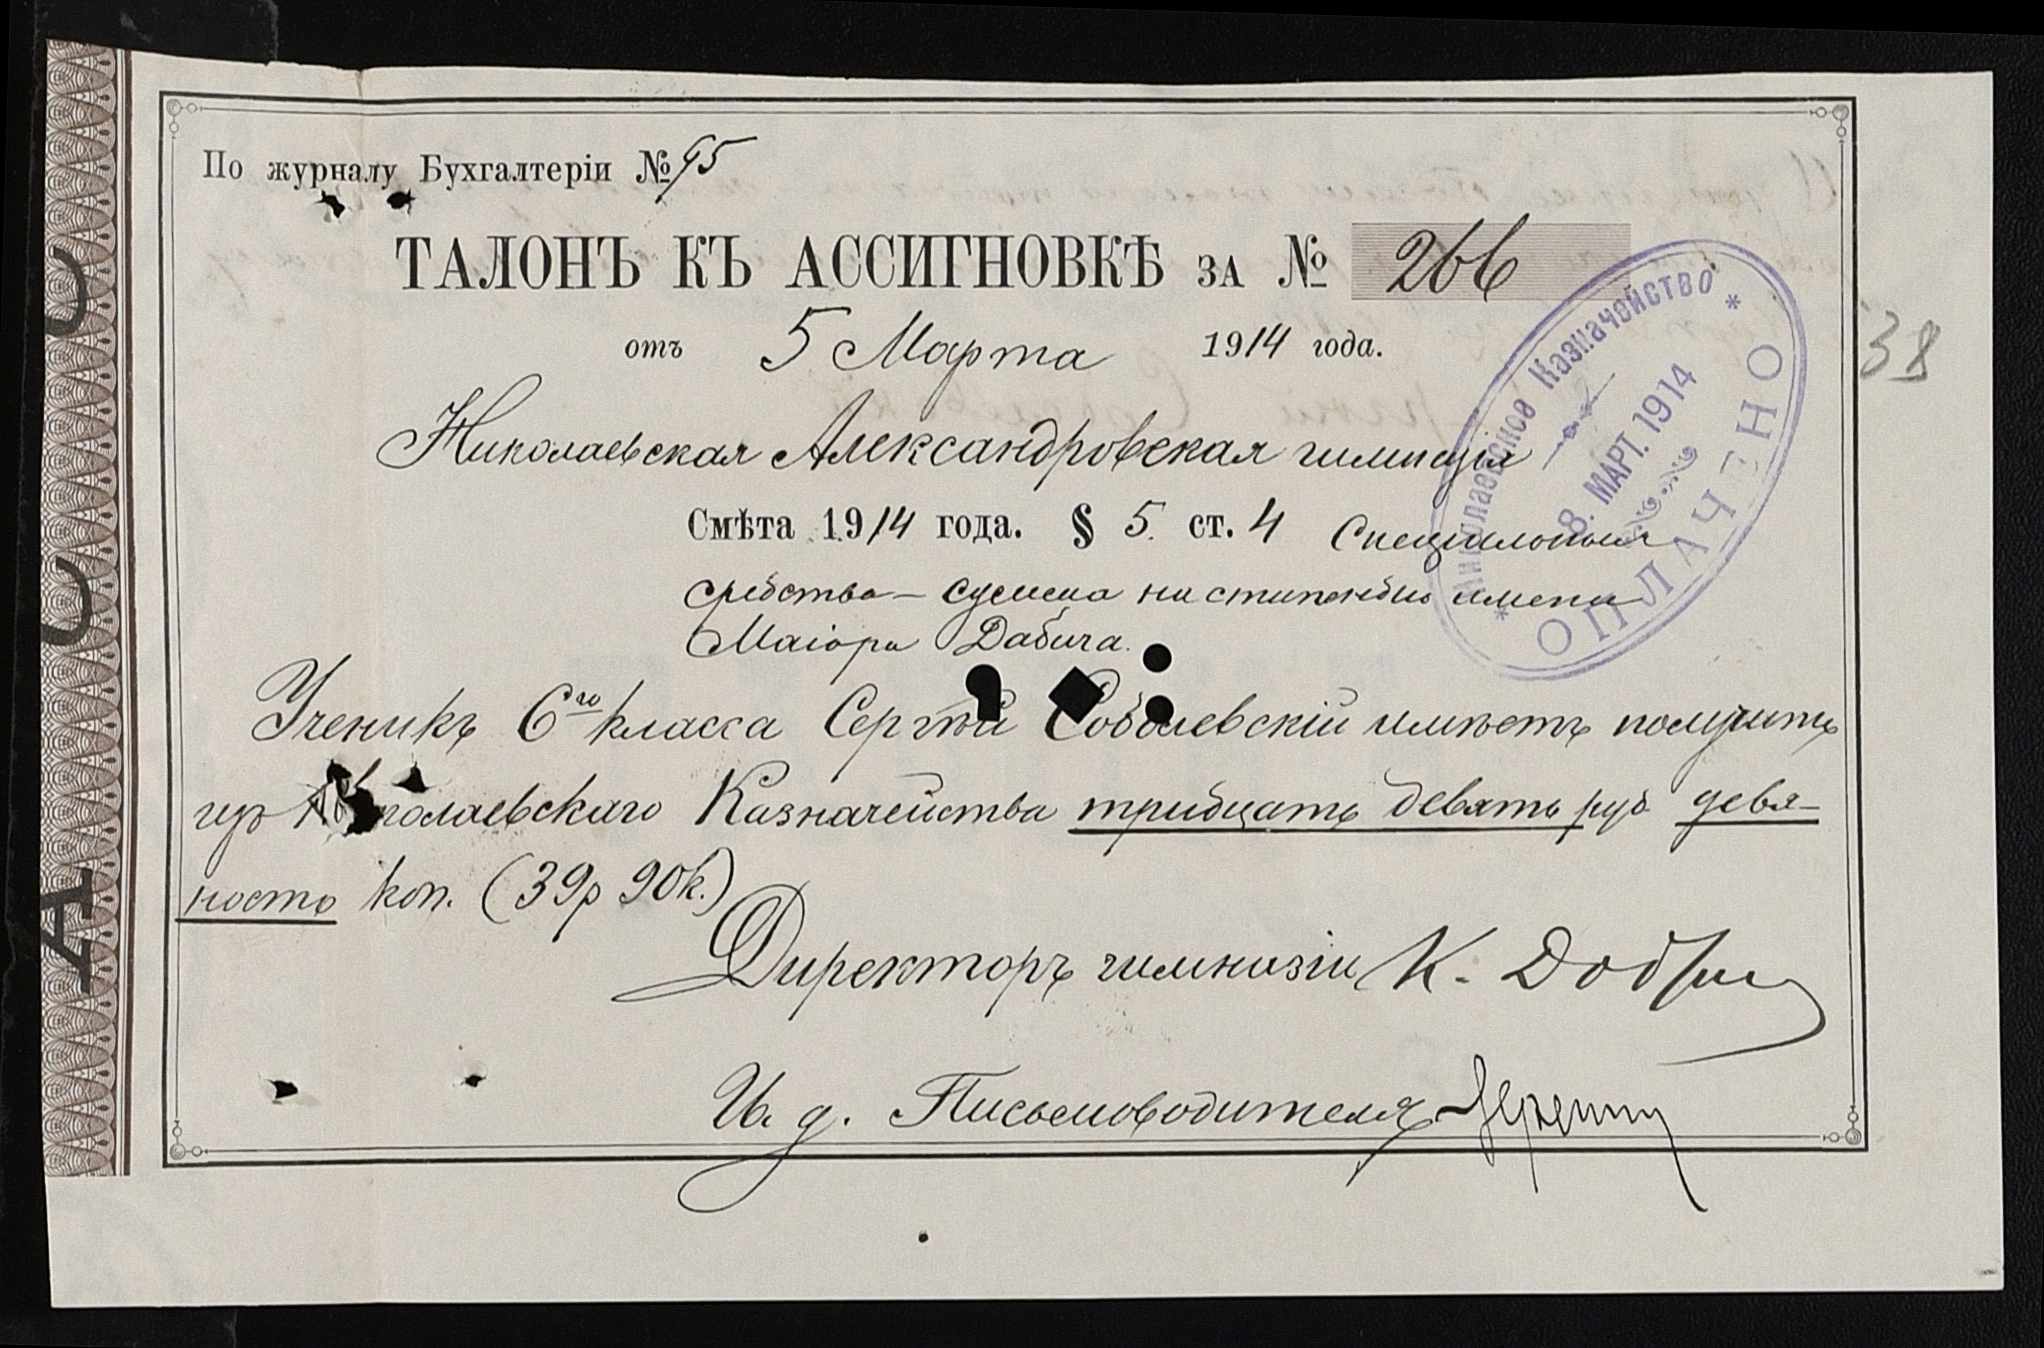 По журналу Бухгалтеріи № 95
ТАЛОНЪ КЪ АССИГНОВКѢ ЗА № 266
отъ 5 Марта 1914 года.
38
Николаевская Александровская гимназія
Смѣта 1914 года. § 5. ст. 4 Спеціальныя
средства – сумма на стипендію имени
Маіора Дабича.
Ученикъ 6го класса Сергѣй Соболевскій имѣетъ получить
изъ Николаевскаго Казначейства тридцать девять руб девя-
носто коп. (39р 90к.)
Директоръ гимназіи К. 
И. д. Письмоводителя
Николаевское Казначейство
8. МАРТ. 1914
ОПЛАЧЕНО